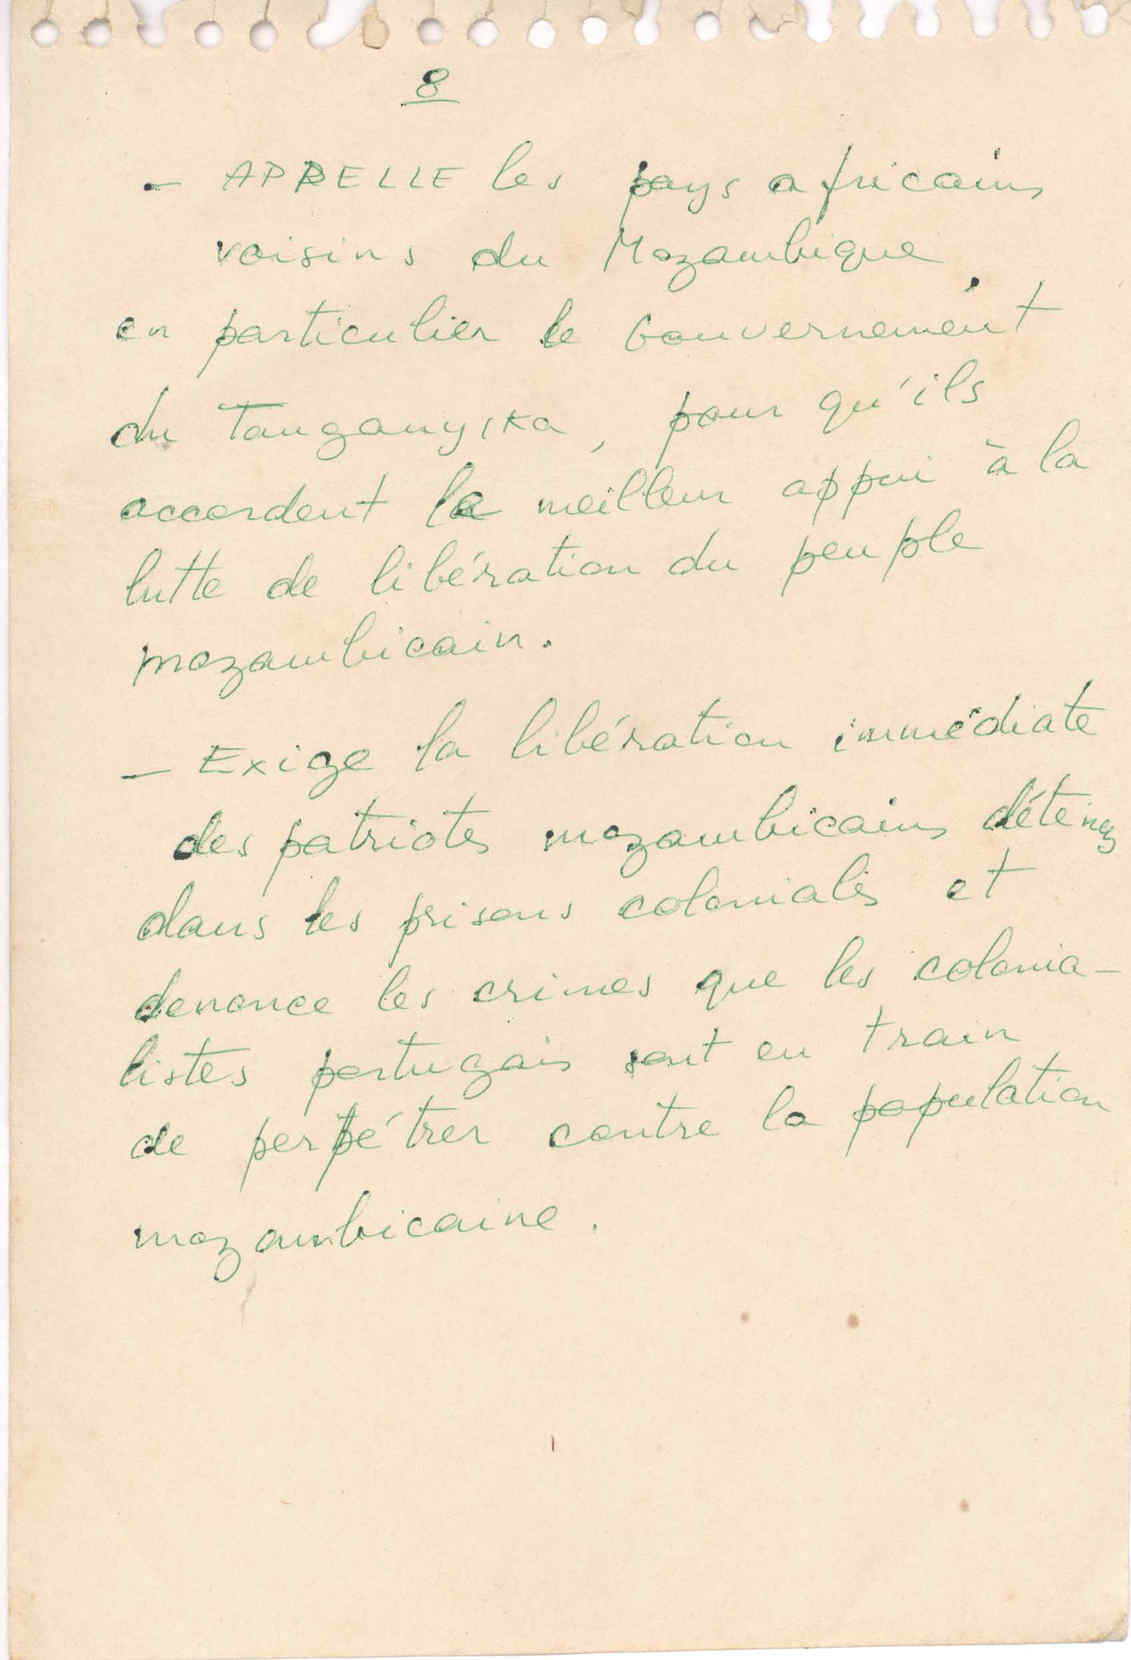 8
- APPELLE les pays africains
voisins du Mozambique
en particulier le Gouvernement
du Tanganyika, pour qu'ils
accordent le meilleur appui à la
lutte de libération du peuple
mozambicain.
- Exige la libération immédiate
des patriotes mozambicains
dans les prisons coloniales et
denonce les crimes que les colonia-
listes portugais sont en train
de perpétrer contre la population
mozambicaine.